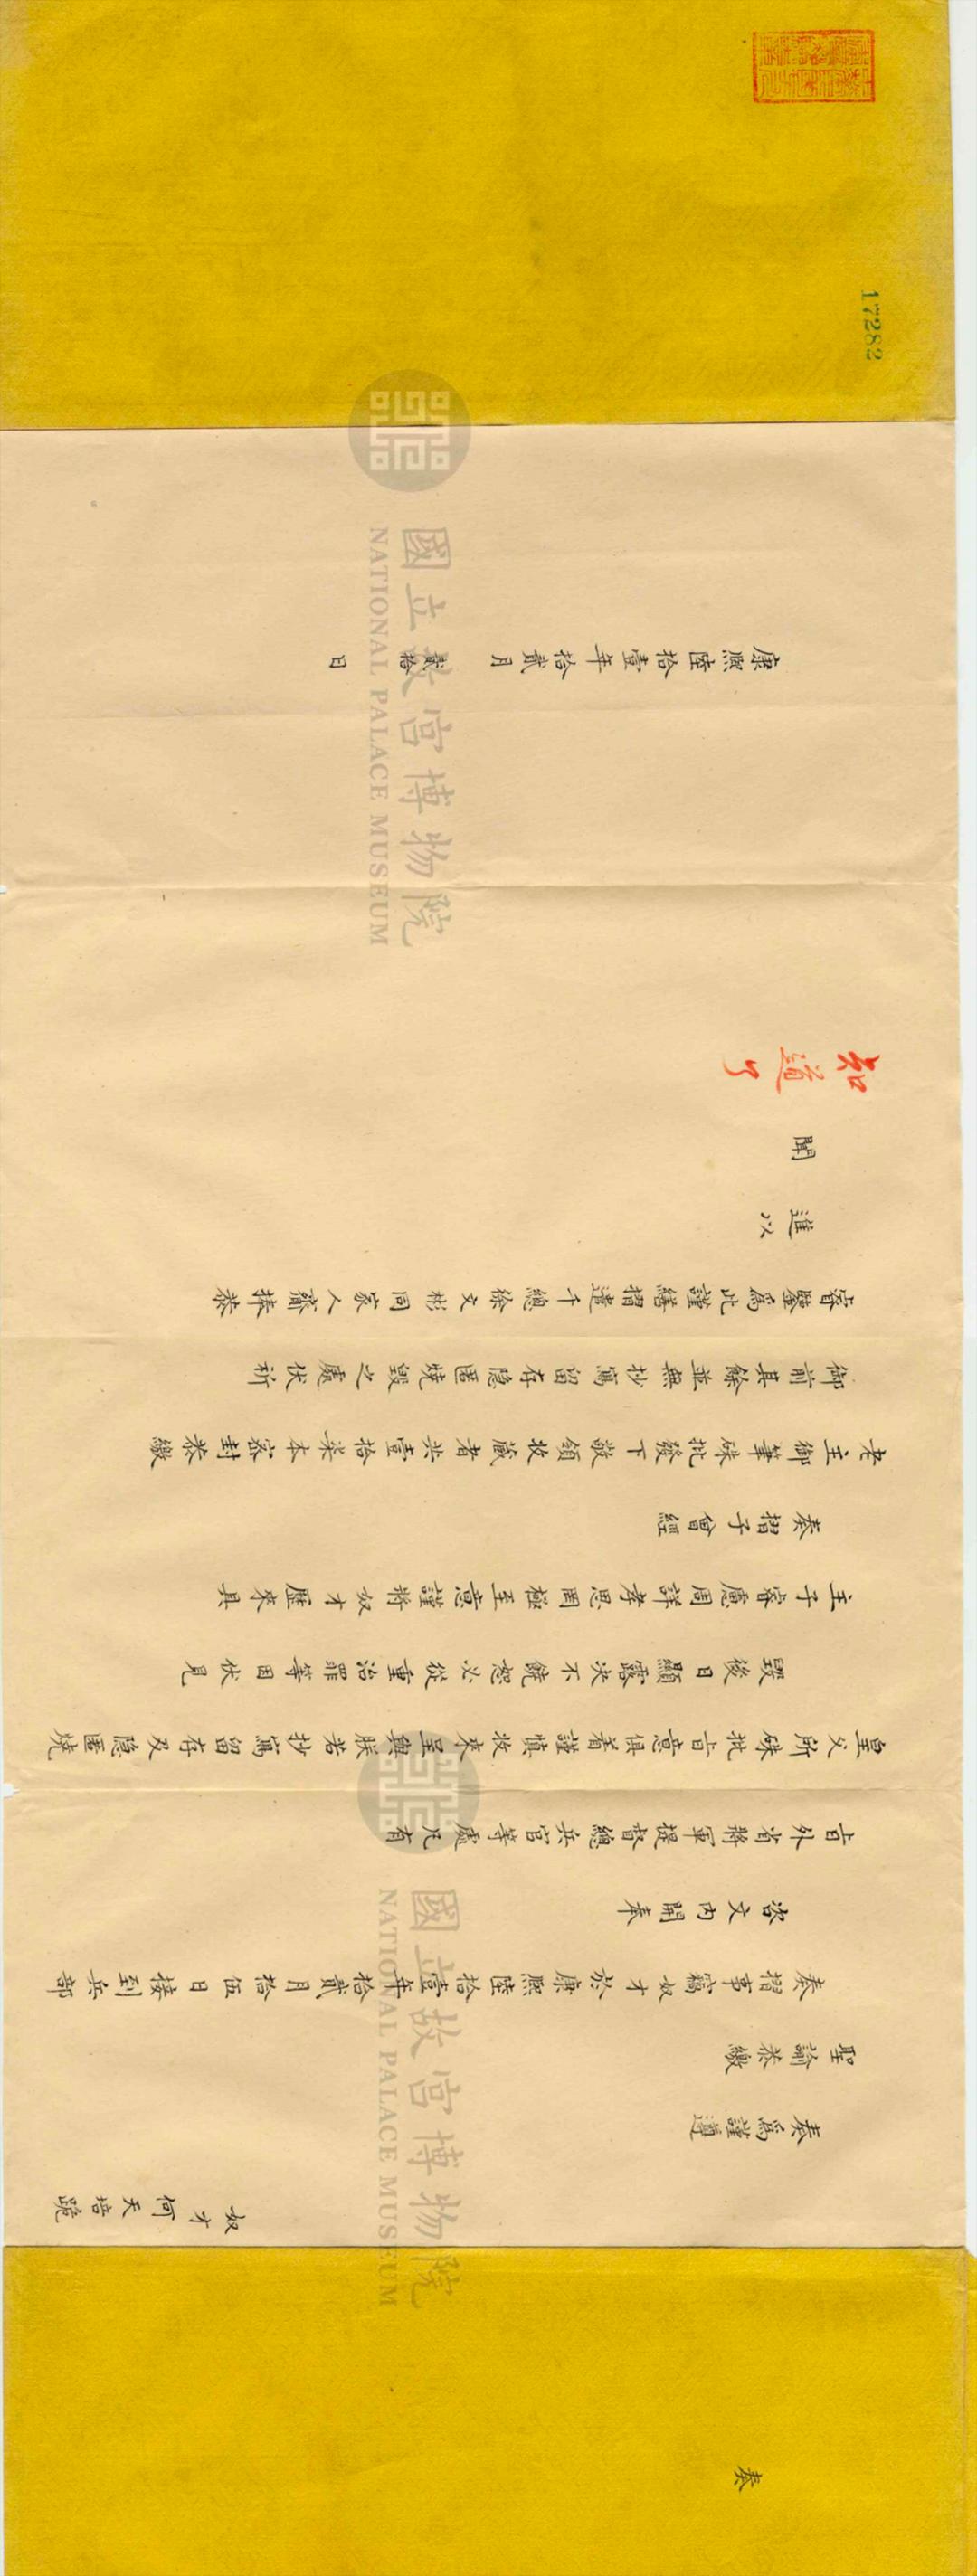 奏
奴才何天培跪
奏為謹遵
聖諭恭繳
奏摺事竊奴才於康熙陸拾壹年拾貳月拾伍日接到兵部
咨文內開奉
旨外省將軍提督總兵官等處凡有
皇父所硃批旨意俱著謹慎收來呈與朕若抄寫留存及隱匿燒
毀後日顯露決不饒恕必從重治罪等因伏見
主子睿慮周詳孝思罔極至意謹將奴才歷來具
奏摺子曾經
老主御筆硃批發下敬領收藏者共壹拾柒本密封恭繳
御前其餘並無抄寫留存隱匿燒毀之處伏祈
睿鑒為此謹繕摺遣千總徐文彬同家人齎捧恭
進以
聞
知道了
康熙陸拾壹年拾貳月 貳拾 日
17282
國立故宮博物院
NATIONAL PALACE MUSEUM
國立故宮博物院
NATIONAL PALACE MUSEUM